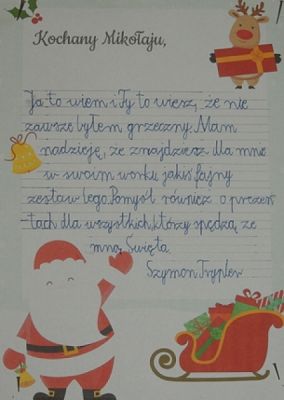 Kochany Mikołaju,
Ja to wiem i Ty to wiesz, że nie
zawsze byłem grzeczny. Mam
nadzieję, że znajdziesz dla mnie
w swoim worku jakiś fajny
zestaw lego. Pomyśl również o prezen
tach dla wszystkich, którzy spędzą ze
mną Święta.
Szymon